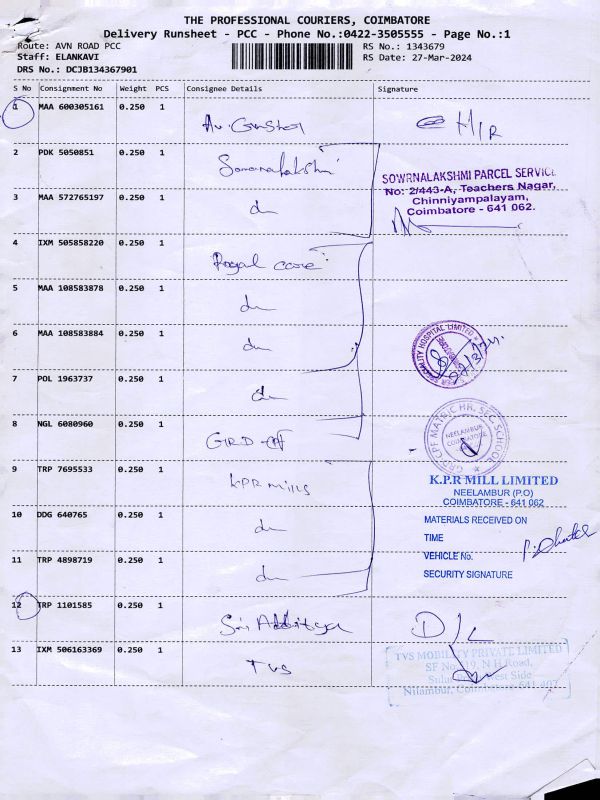 THE PROFESSIONAL COURIERS, COIMBATORE
Delivery Runsheet - PCC - Phone No.:0422-3505555 - Page No.:1
Route: AVN ROAD PCC
RS No.: 1343679
Staff: ELANKAVI
RS Date: 27-Mar-2024
DRS No.: DCJB134367901
S No Consignment No Weight PCS Consignee Details Signature
1 MAA 600305161 0.250 1
2 PDK 5050851 0.250 1 Sowrnalakshmi
SOWRNALAKSHMI PARCEL SERVICE
No: 2/443-A, Teachers Nagar,
Chinniyampalayam,
Coimbatore - 641 062.
3 MAA 572765197 0.250 1 du
4 IXM 505858220 0.250 1 Royal care
5 MAA 108583878 0.250 1 du
6 MAA 108583884 0.250 1 du
SPECIALITY HOSPITAL LIMITED
7 POL 1963737 0.250 1 du
8 NGL 6080960 0.250 1 GRD-CPF
GRD CPF MATRIC HR. SEC. SCHOOL
NEELAMBUR
COIMBATORE
9 TRP 7695533 0.250 1 KPR Mills
K.P.R MILL LIMITED
NEELAMBUR (P.O)
COIMBATORE - 641 062
10 DDG 640765 0.250 1 du
MATERIALS RECEIVED ON
TIME
VEHICLE No.
SECURITY SIGNATURE
11 TRP 4898719 0.250 1 du
12 TRP 1101585 0.250 1 Sri Additya D/L
13 IXM 506163369 0.250 1 TVS
TVS MOBILITY PRIVATE LIMITED
SF No. 719, N H Road,
West Side
Nilambur, Coimbatore 641 407